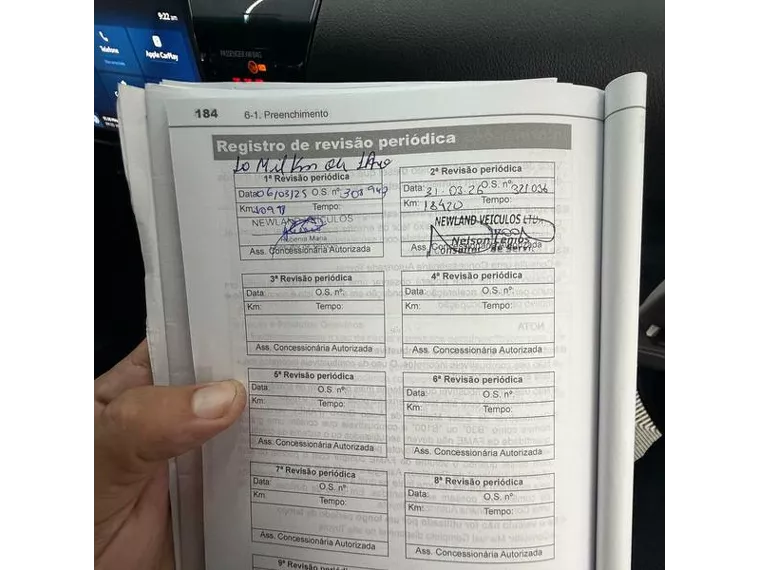 9:22 am
Telefone
Apple CarPlay
PASSENGER AIRBAG
184 6-1. Preenchimento
Registro de revisão periódica
10 Mil Km ou 1 Ano
1ª Revisão periódica
Data: 06/03/25 O.S. nº: 308947
Km: 10998 Tempo:
NEWLAND VEICULOS
Rubenia Maria
Ass. Concessionária Autorizada
2ª Revisão periódica
Data: 31.03.26 O.S. nº: 321.036
Km: 18420 Tempo:
NEWLAND VEICULOS LTDA
Nelson Lemos
Consultor de Serv.
Ass. Concessionária Autorizada
3ª Revisão periódica
Data: O.S. nº:
Km: Tempo:
Ass. Concessionária Autorizada
4ª Revisão periódica
Data: O.S. nº:
Km: Tempo:
Ass. Concessionária Autorizada
5ª Revisão periódica
Data: O.S. nº:
Km: Tempo:
Ass. Concessionária Autorizada
6ª Revisão periódica
Data: O.S. nº:
Km: Tempo:
Ass. Concessionária Autorizada
7ª Revisão periódica
Data: O.S. nº:
Km: Tempo:
Ass. Concessionária Autorizada
8ª Revisão periódica
Data: O.S. nº:
Km: Tempo:
Ass. Concessionária Autorizada
9ª Revisão periódica